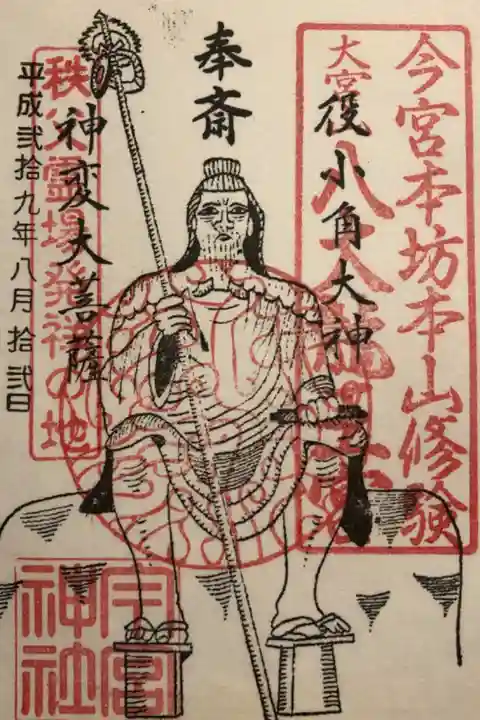 今宮本坊本山修験
大宮
八大龍
役小角大神
奉斎
神変大菩薩
秩父霊場発祥の地
平成弐拾九年八月拾弐日
今宮神社